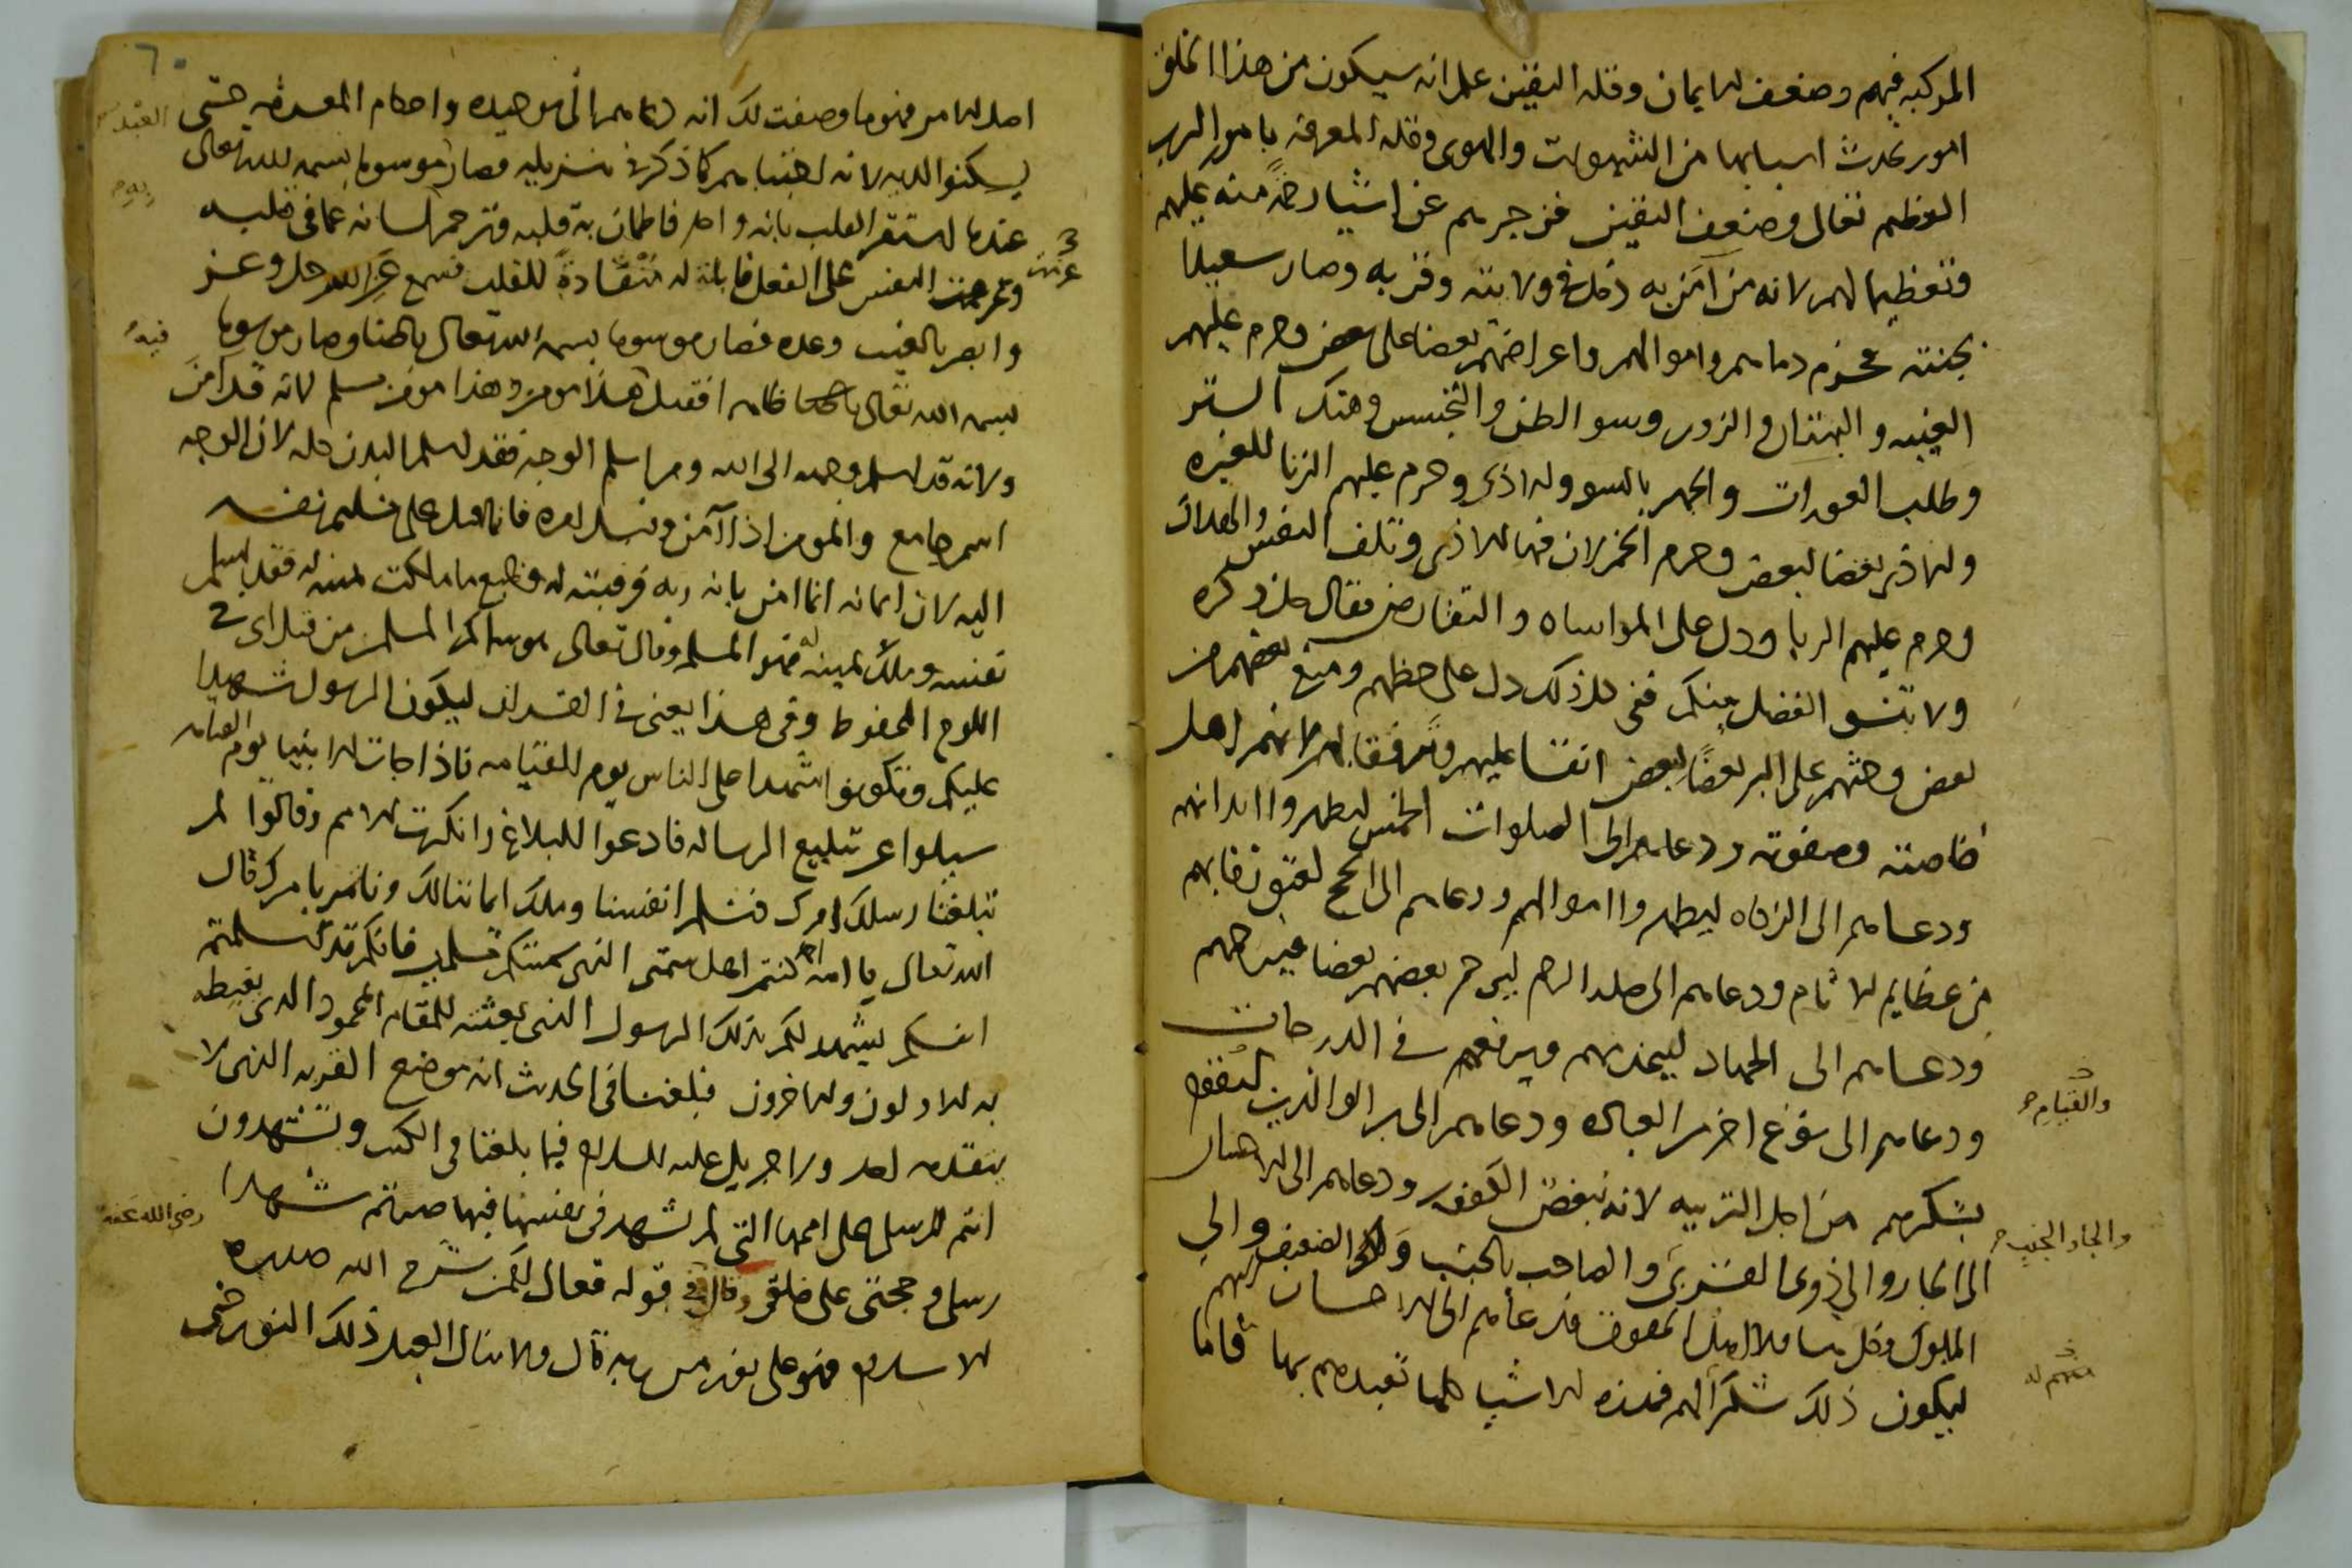 المركبه فيهم وضعف الايمان وقله اليقين علم انه سيكون من هذا الخلق
امور تحدث اسبابها من الشهوات والهوى وقله المعرفه بامور الرب
العظيم تعالى وضعف اليقين فزجرهم عن اشيا رحمة منه عليهم
وتعظيما لهم لانه من آمن به دخل في ولايته وقربه وصار سعيدا
بجنته فحرم دماهم واموالهم واعراضهم بعضا على بعض وحرم عليهم
الغيبه والبهتان والزور وسو الظن والتجسس وهتك الستر
وطلب العورات والجهر بالسو والاذى وحرم عليهم الزنا للغيره
ولاذى بعضا لبعض وحرم الخمر لان فيها الاذى وتلف النفس والهلاك
وحرم عليهم الربا ودل على المواساه والتقارض فقال جل ذكره
ولا تنسو الفضل بينكم ففي كل ذلك دل على حظهم ومنع بعضهم من
بعض وحثهم على البر بعضًا لبعض ابقا عليهم وترفقا بهم لانهم اهل
خاصته وصفوته ودعاهم الى الصلوات الخمس ليطهروا ابدانهم
ودعاهم الى الزكاه ليطهروا اموالهم ودعاهم الى الحج لعتق رقابهم
من عظايم الاثام ودعاهم الى صله الرحم ليرحم بعضهم بعضا فيرحمهم
ودعاهم الى الجهاد ليعذبهم ويرفعهم في الدرجات
والقيام
ودعاهم الى نوع اخر من العباده ودعاهم الى بر الوالدين
بشكرهم من اجل التربيه لانه يبغض الكفور ودعاهم الى الاحسان
والجار الجنب
الى الجار والى ذوي القربى والصاحب بالجنب والى الضعيف والى
المملوك وكل فدعاهم الى الاحسان اليهم
ليكون ذلك شكرا لهم فهذه الاشيا كلها تعبدهم بها فاما
٦٠
اصل الامر فهو ما وصفت لك انه دعاهم الى توحيده واحكام المعرفه حتى
يسكنوا اليه لانه اجتباهم كما ذكر في تنزيله فصار موسوما بسمه الله تعالى
عندما استقر القلب بانه واحد فاطمان به قلبه فترجم لسانه عما في قلبه
وعزمت النفس على الفعل قابلة له منقادة للقلب فسمع عن الله جل وعز
وابصر بالغيب وعده فصار موسوما بسمه الله تعالى باطنا وصار موسوما
فيه
بسمه الله تعالى ظاهرا فقيل هذا مومن وهذا مومن مسلم لانه قد آمن
ولانه قد اسلم وجهه الى الله ومن اسلم الوجه فقد اسلم البدن كله لان الوجه
اسم جامع والمومن اذا آمن فانما اقبل على تسليم نفسه
اليه لان ايمانه انما امن بانه ربه فرقبته له وجميع ما ملكت يمينه له فقد اسلم
نفسه وملك يمينه فهو المسلم وقال تعالى هو سماكم المسلمين من قبل اى في
اللوح المحفوظ وفي هذا يعني في القران ليكون الرسول شهيدا
عليكم وتكونوا شهدا على الناس يوم القيامه فاذا جات الانبيا يوم القيامه
سيلوا عن تبليغ الرساله فادعوا البلاغ وانكرت الامم وقالوا لم
تبلغنا رسلك امرك فنسلم انفسنا وملك ايماننا لك وناتمر بامرك قال
الله تعالى يا امه احمد كنتم اهل سمتي التي سميتكم مسلمين فانكم قد اسلمتم
انفسكم ليشهد لكم بذلك الرسول الذي بعثته المقام المحمود الذي يغبطه
به الاولون والاخرون فبلغنا في الحديث انه موضع القربه الذي لا
يتقدمه احد ورا جبريل عليه السلام فيما بلغنا في الكتب وتشهدون
انتم للرسل على اممها التي لم تشهد في نفسها فيها صرتم شهدا
رضي الله عنه
رسلي وحجتي على خلقي وقال في قوله تعالى افمن شرح الله صدره
للاسلام فهو على نور من ربه قال ولا ينال العبد ذلك النور حتى